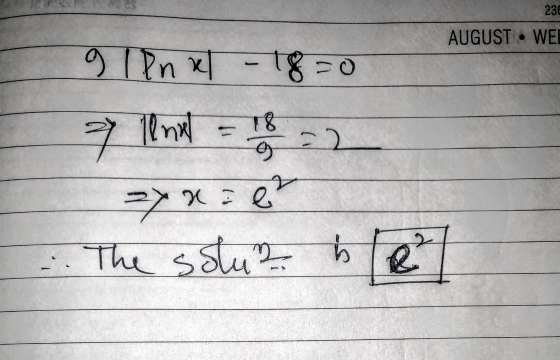 236
AUGUST • WE
9 |ln x| - 18 = 0
⇒ |lnx| = 18/9 = 2
⇒ x = e²
∴ The solu² is e²